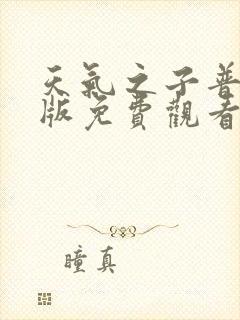 天氣之子普
版免費觀看
瞳真